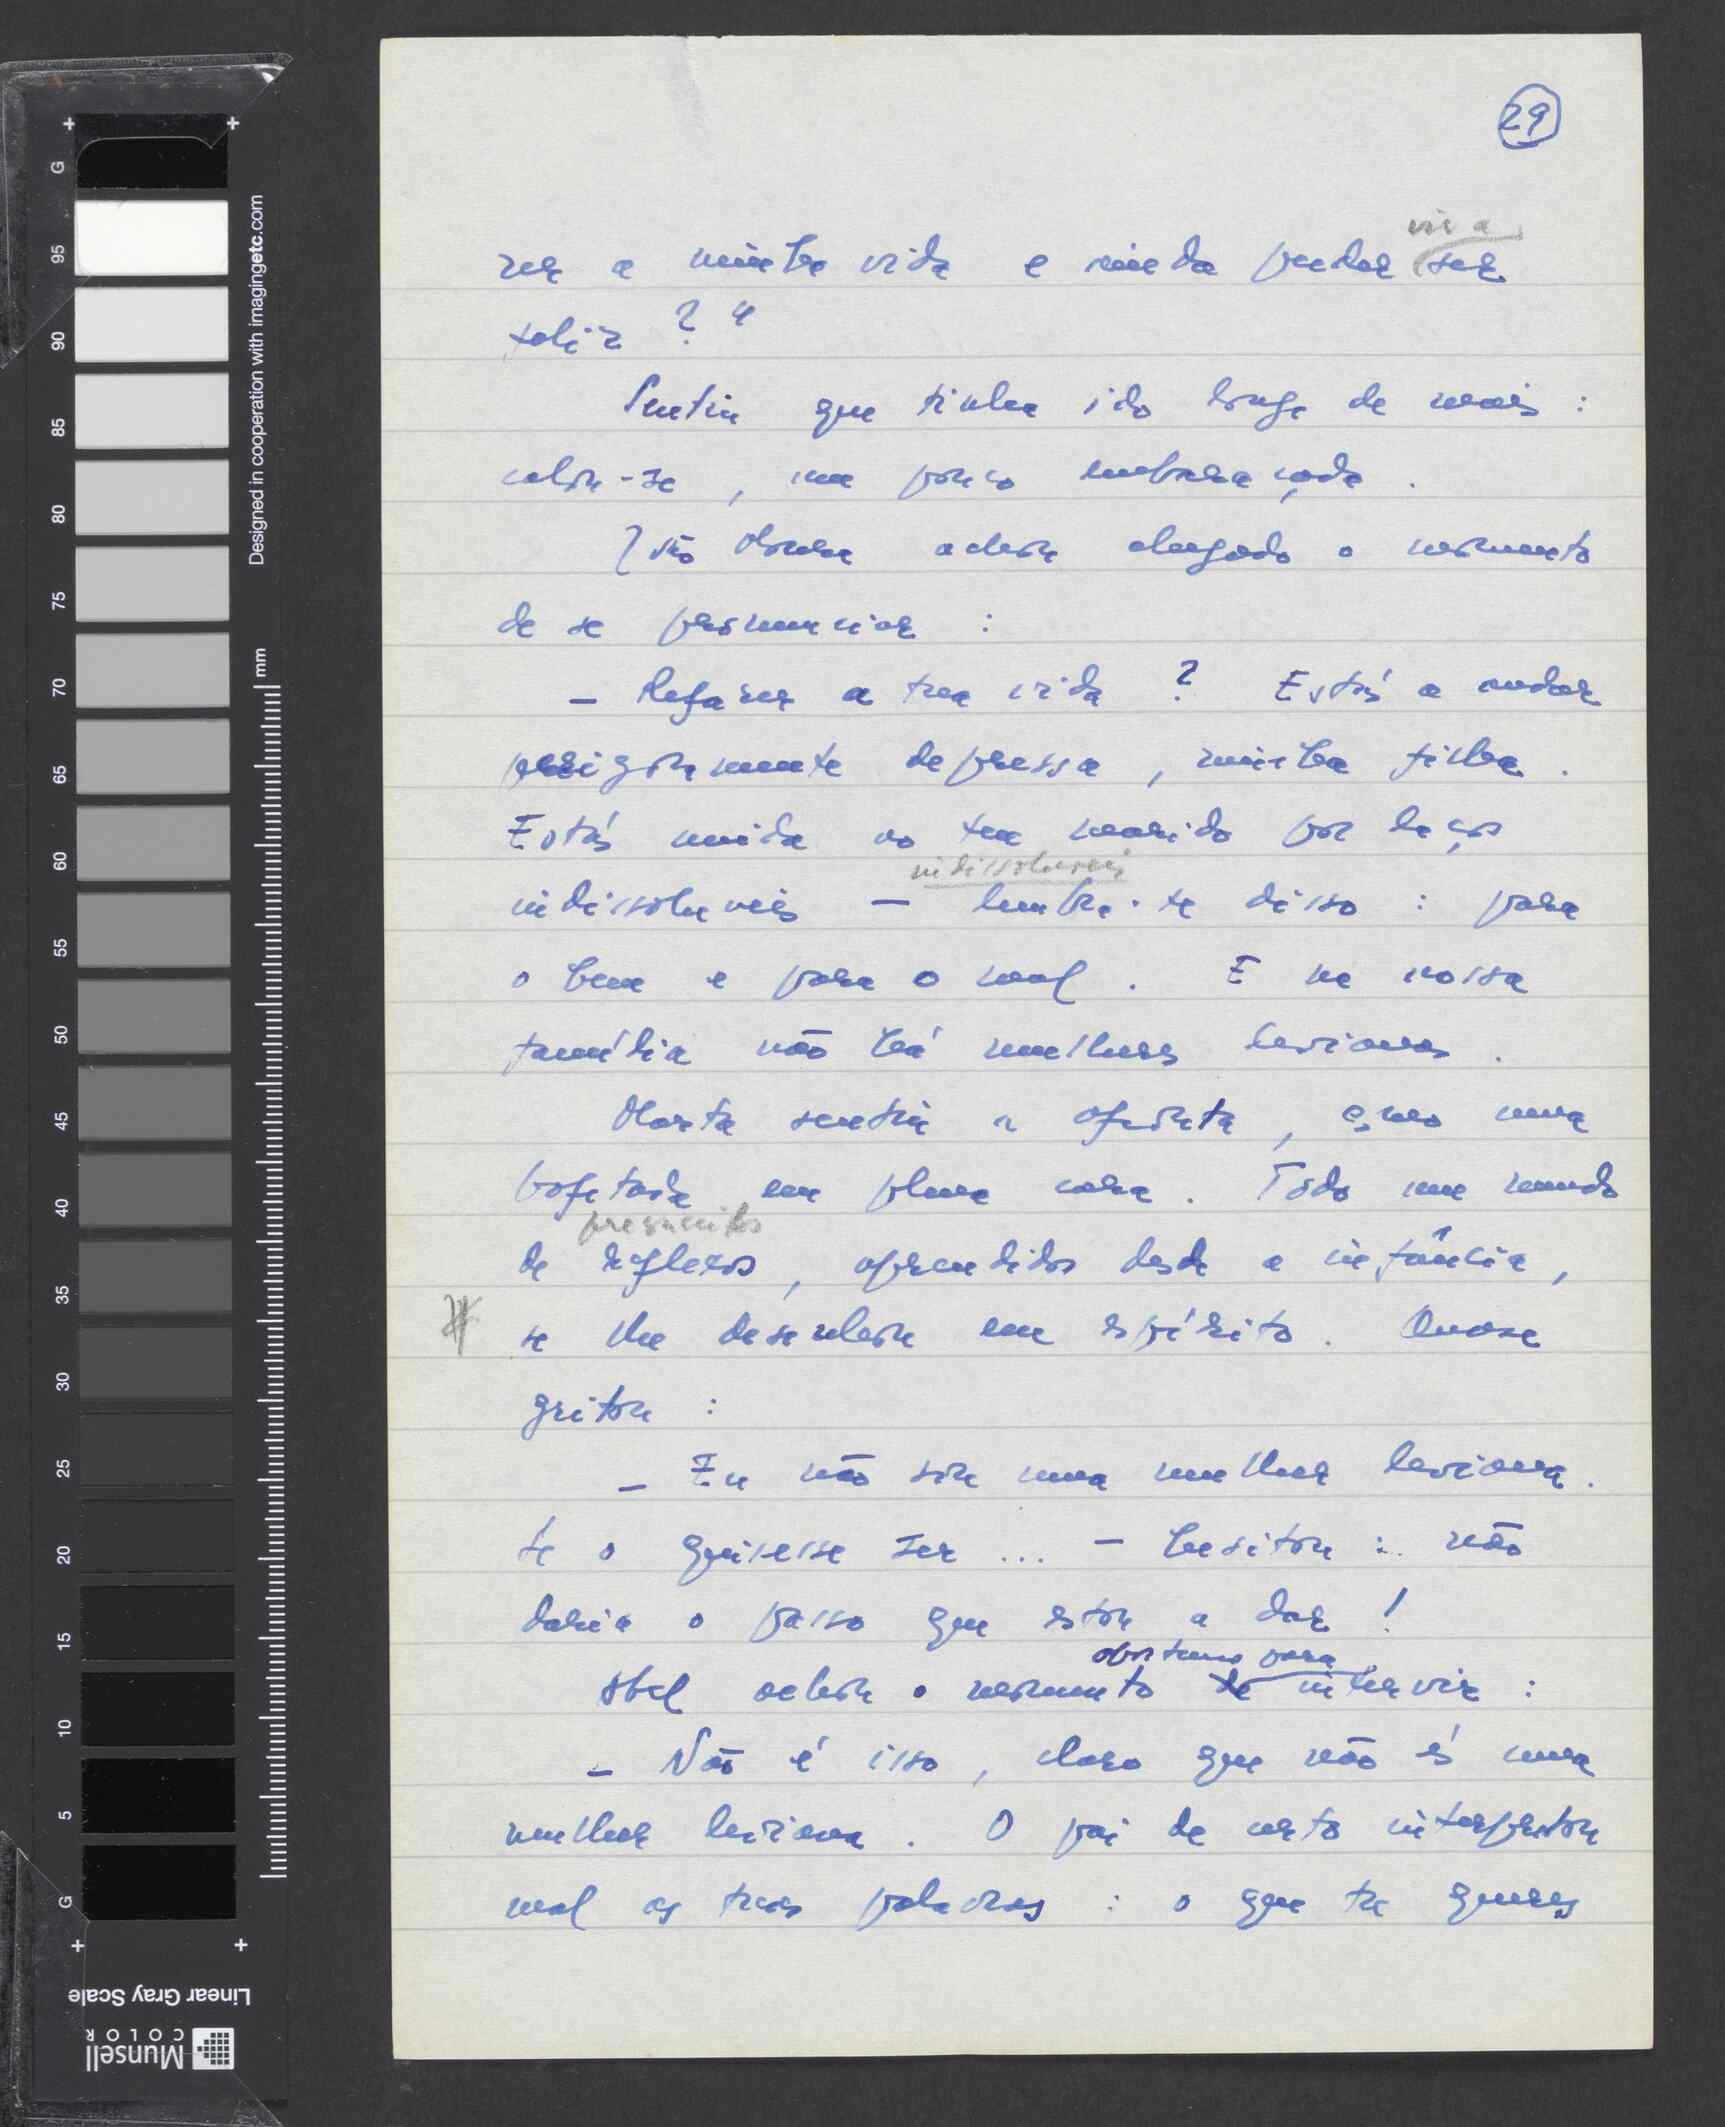 29
vir a
zer a minha vida e ainda poder ser
feliz ?"
Sentiu que tinha ido longe de mais :
calou-se, um pouco embaraçada.
João achou chegado o momento
de se pronunciar :
– Refazer a tua vida ? Estás a andar
perigosamente depressa, minha filha.
Estás unida ao teu marido por laços
indissoluveis
indissoluveis – lembra-te disso : para
o bem e para o mal. E na nossa
família não há mulheres levianas.
Marta sentiu a afronta, como uma
bofetada em plena cara. Todo um mundo
preconceitos
de reflexos, aprendidos desde a infância,
se lhe desenhou em espírito. Quase
gritou :
– Eu não sou uma mulher leviana.
Se o quisesse ser ... – hesitou : não
daria o passo que estou a dar !
oportuno para
Abel achou o momento de intervir :
– Não é isso, claro que não és uma
mulher leviana. O pai de certo interpretou
mal as tuas palavras : o que tu queres
Designed in cooperation with imagingetc.com
mm
G 95 90 85 80 75 70 65 60 55 50 45 40 35 30 25 20 15 10 5 G
Linear Gray Scale
Munsell
COLOR